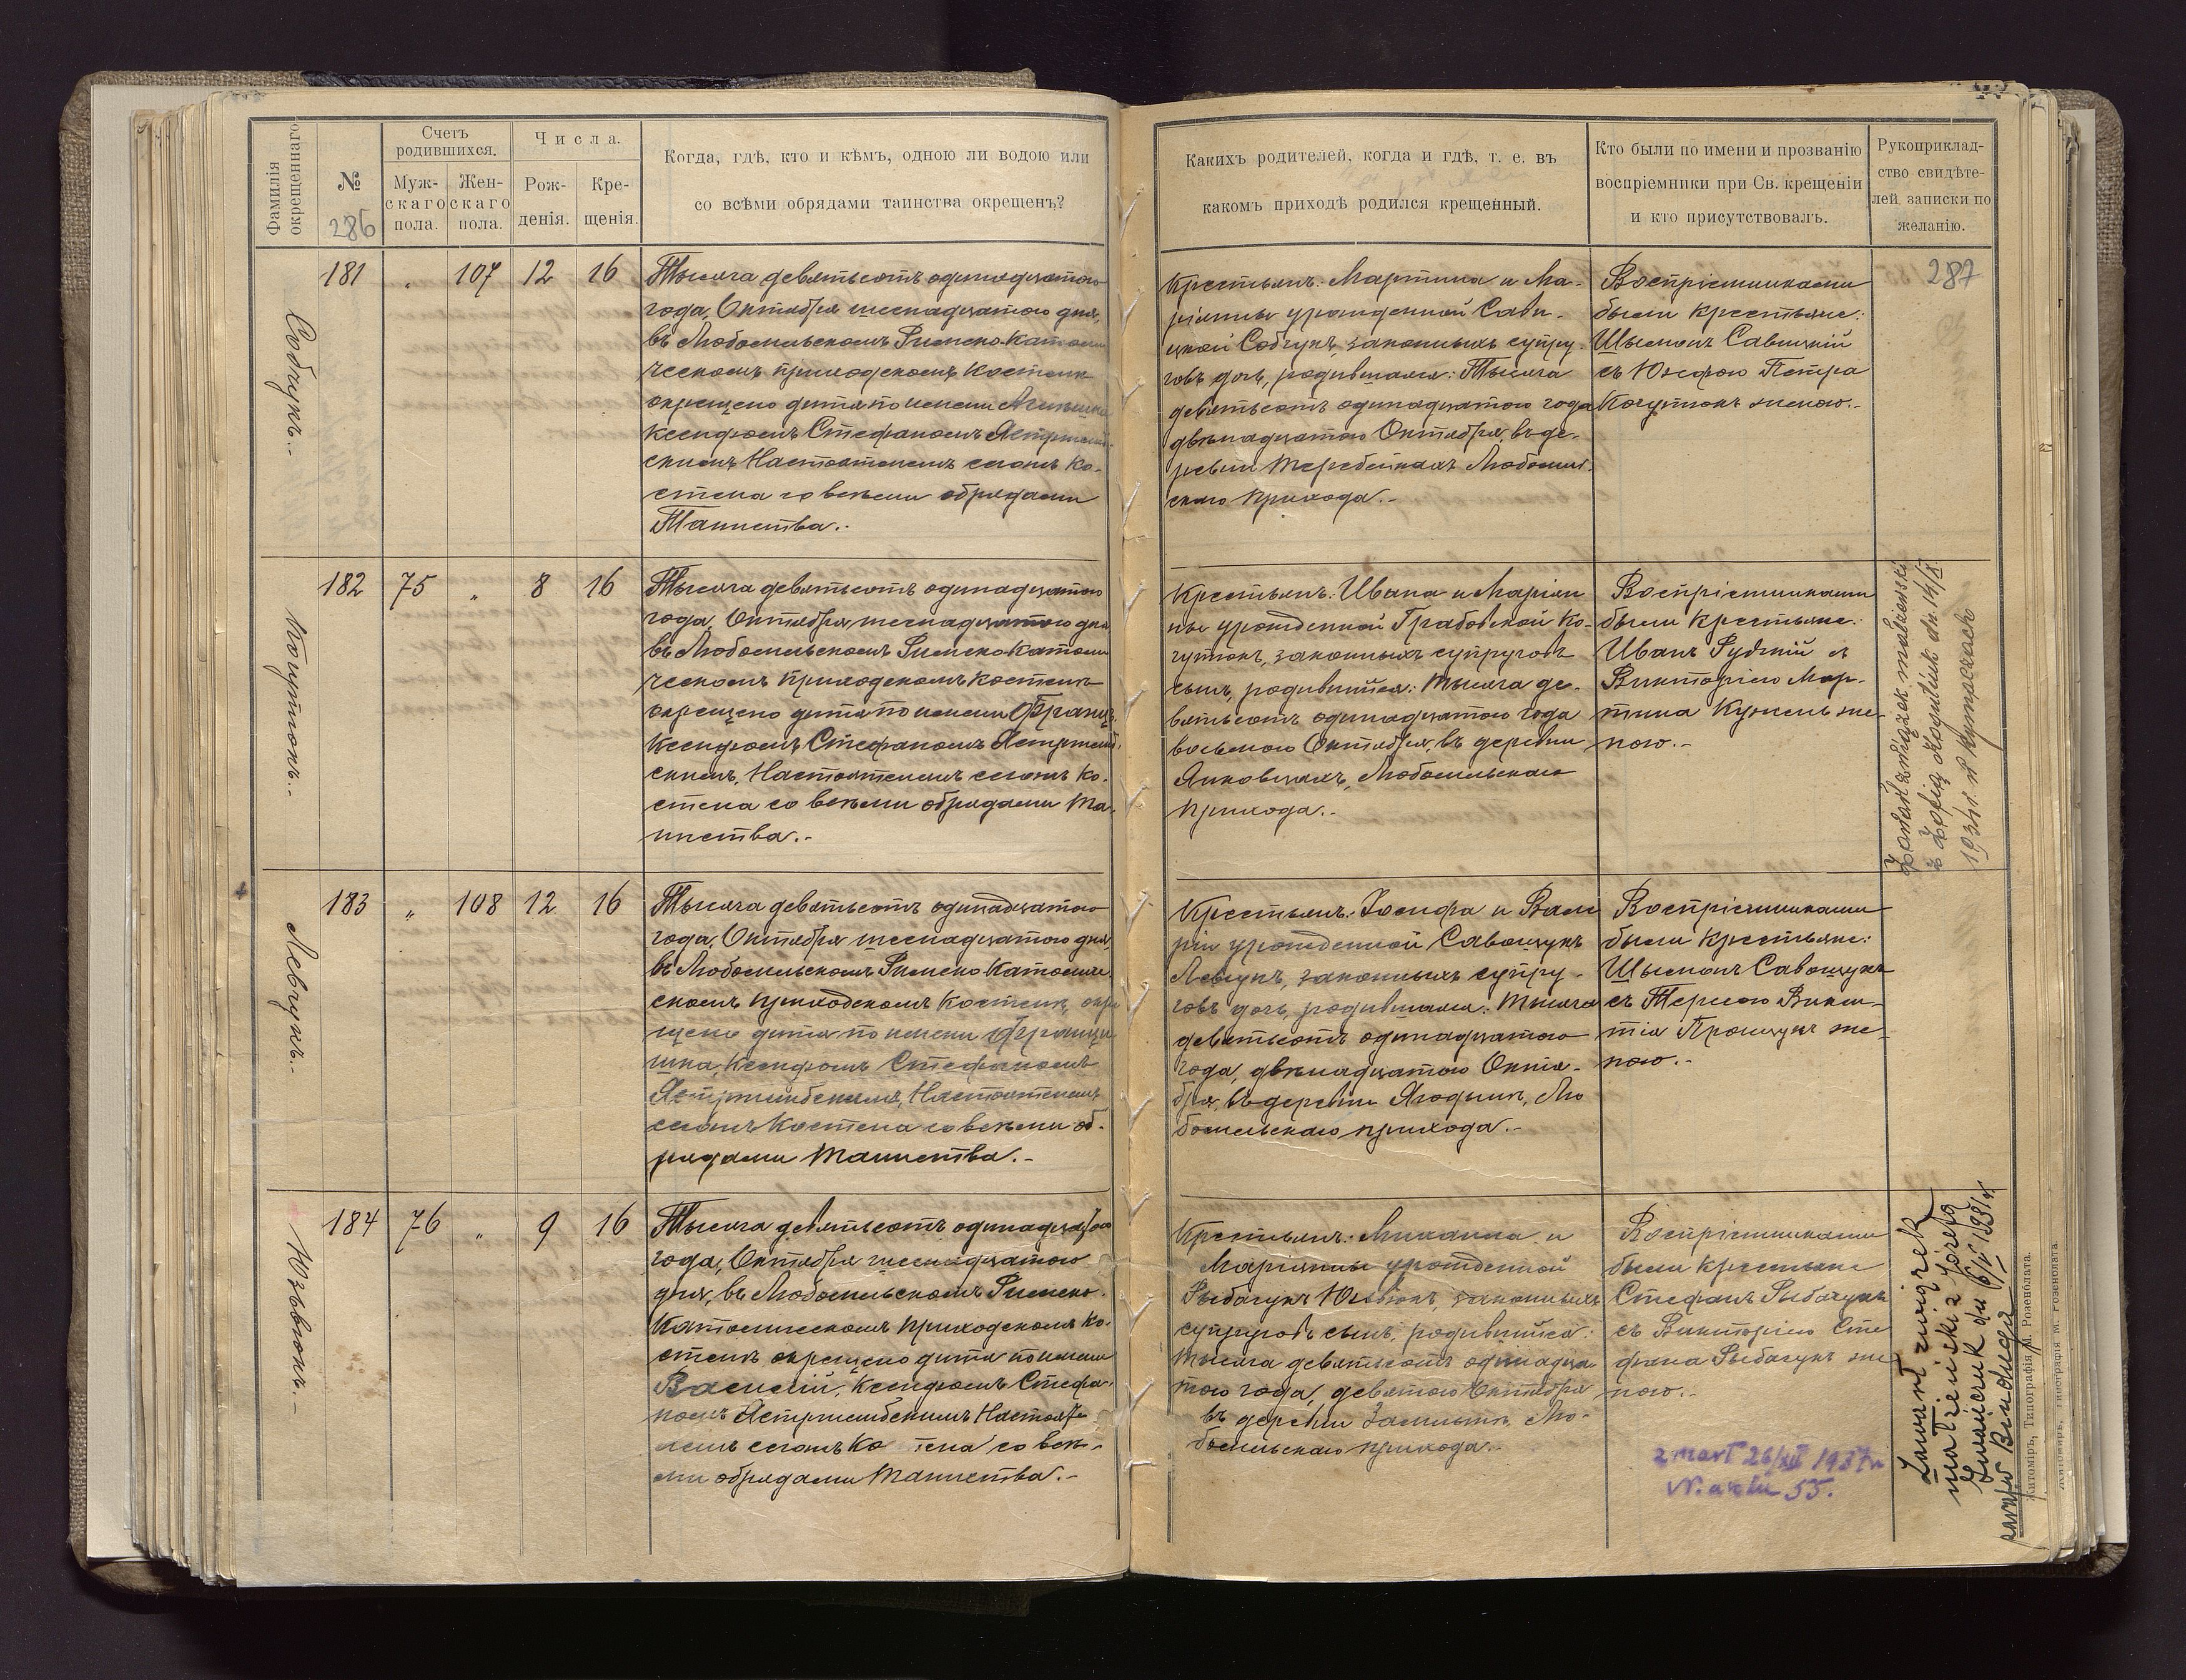 Фамилія
окрещеннаго
№
286
Счетъ
родившихся.
Муж-
скаго
пола.
Жен-
скаго
пола.
Числа.
Рож-
денія.
Кре-
щенія.
Когда, гдѣ, кто и кѣмъ, одною ли водою или
со всѣми обрядами таинства окрещенъ?
Собчукъ.-
181
"
107
12
16
Тысяча девятьсотъ одинадцатого
года, Октября шеснадцатого дня,
въ Любомльскомъ Римско-Католи
ческомъ приходскомъ Костелѣ
окрещено дитя по имени
Ксендзомъ Стефаномъ
скимъ Настоятелемъ сегожъ Ко-
стела со всѣми обрядами
Таинства.-
Когутюкъ.-
182
75
"
8
16
Тысяча девятьсотъ одинадцатого
года, Октября шеснадцатого дня
въ Любомльскомъ Римско-Католи
ческомъ приходскомъ Костелѣ
окрещено дитя по имени Францъ.
Ксендзомъ Стефаномъ
скимъ, Настоятелемъ сегожъ Ко-
стела со всѣми обрядами Та-
инства.-
Левчукъ.-
183
"
108
12
16
Тысяча девятьсотъ одинадцатого
года, Октября шеснадцатого дня,
въ Любомльскомъ Римско Католиче
скомъ приходскомъ Костелѣ, окре
щено дитя по имени Франци
шка, Ксендзомъ Стефаномъ
Ястржембскимъ, Настоятелемъ
сегожъ Костела со всѣми об-
рядами Таинства.-
Юзвюкъ.-
184
76
"
9
16
Тысяча девятьсотъ одинадцатого
года, Октября шеснадцатого
дня, въ Любомльскомъ Римско-
Католическомъ приходскомъ Ко-
стелѣ окрещено дитя по имени
Василій, Ксендзомъ Стефа-
номъ Ястржембскимъ Настояте
лемъ сегожъ Ко тела со всѣ-
ми обрядами Таинства.-
Какихъ родителей, когда и гдѣ, т. е. въ
какомъ приходѣ родился крещенный.
Кто были по имени и прозванію
воспріемники при Св. крещеніи
и кто присутствовалъ.
Рукоприклад-
ство свидѣте-
лей записки по
желанію.
287
Крестьянъ: Мартина и Ма-
ріянны урожденной Сави-
цкой Собчукъ, законныхъ супру-
говъ дочь, родившаяся: Тысяча
девятьсотъ одинадцатого года
двѣнадцатого Октября, въ де-
ревни Теребейкахъ Любомль-
скаго прихода.-
Воспріемниками
были Крестьяне:
Шымонъ Савицкій
съ Юзефою Петра
Когутюкъ женою.-
Крестьянъ: Ивана и Маріян
ны урожденной Грабовской Ко-
гутюкъ, законныхъ супруговъ
сынъ, родившійся: Тысяча де-
вятьсотъ одинадцатого года
восьмого Октября, въ деревни
Янковцахъ, Любомльскаго
прихода.-
Воспріемниками
были Крестьяне:
Иванъ Рудкій съ
Викторіею Мар-
тина Кужель же-
ною.-
Zawarł związek małżeński
z Zofią Kogutiuk dn. 14/X
1934 r. w Rymaczach
Крестьянъ: Іосифа и Вале
ріи урожденной Савощукъ
Левчукъ, законныхъ супру-
говъ дочь, родившаяся: Тысяча
девятьсотъ одинадцатого
года, двѣнадцатого Октя-
бря, въ деревни Ягодынѣ, Лю
бомльскаго прихода.-
Воспріемниками
были Крестьяне:
Шымонъ Савощукъ
съ Тересою Викен-
тія Процукъ же-
ною.-
Крестьянъ: Михаила и
Маріянны урожденной
Рыбачукъ Юзвюкъ, законныхъ
супруговъ сынъ, родившійся:
Тысяча девятьсотъ одинадца-
того года, девятого Октября
въ деревни Замлынѣ, Лю-
бомльскаго прихода.-
Воспріемниками
были Крестьяне
Стефанъ Рыбачукъ
съ Викторіею Сте
фана Рыбачукъ же
ною.-
Zawarł związek
małżeński z Józefą
Iwańczuk dn 6/II 1934 r.
zmarł 26/XII 1937 r
N. aktu 55.
Житоміръ, Типографія М. Розенблата.